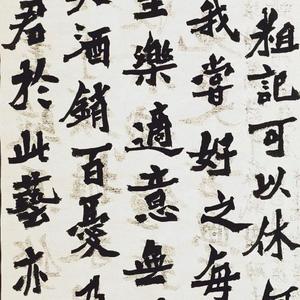 粗記可以休
我嘗好之每
樂適意無
酒銷百憂乃
君於此藝亦